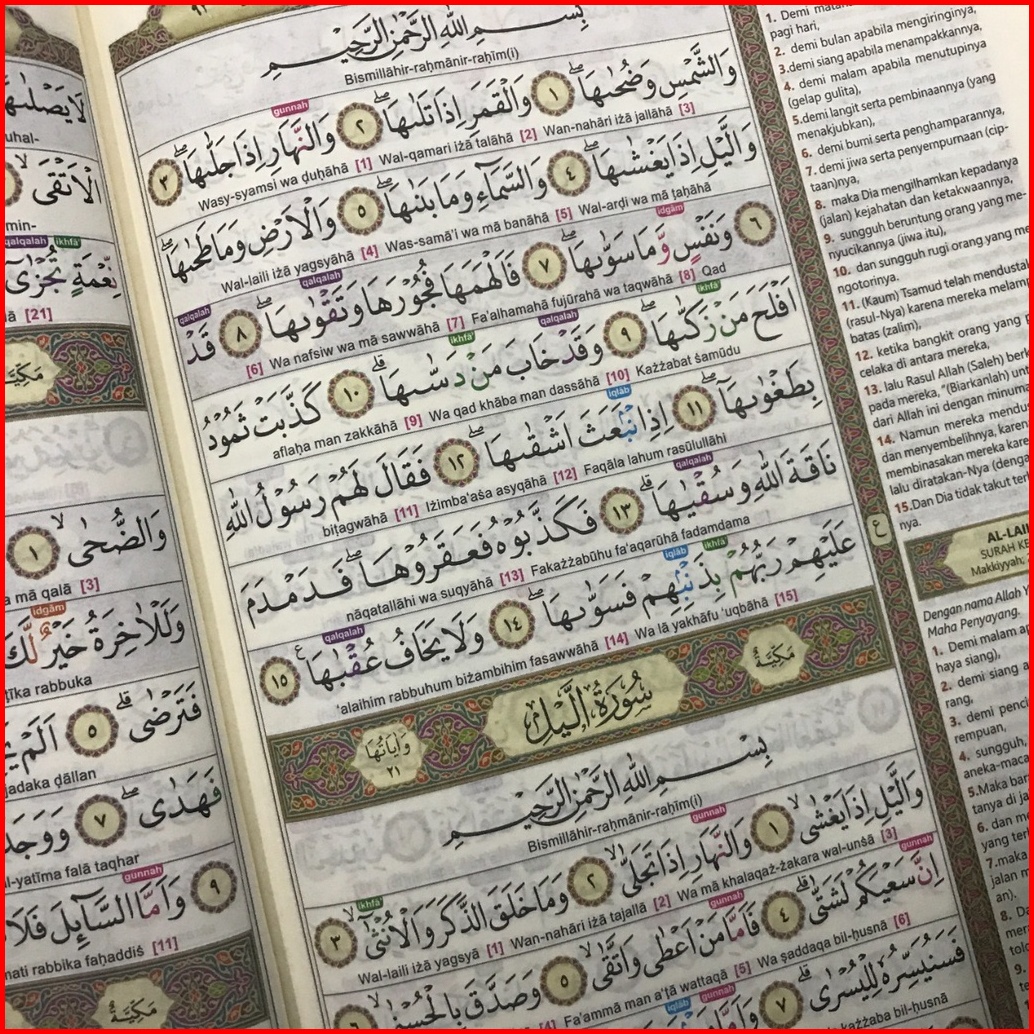 بِسْمِ اللّٰهِ الرَّحْمٰنِ الرَّحِيْمِ
Bismillāhir-raḥmānir-raḥīm(i)
وَالشَّمْسِ وَضُحٰىهَاۖ ١ وَالْقَمَرِ اِذَا تَلٰىهَاۖ ٢ وَالنَّهَارِ اِذَا جَلّٰىهَاۖ ٣
gunnah
Wasy-syamsi wa ḍuḥāhā [1] Wal-qamari iżā talāhā [2] Wan-nahāri iżā jallāhā [3]
وَالَّيْلِ اِذَا يَغْشٰىهَاۖ ٤ وَالسَّمَاۤءِ وَمَا بَنٰىهَاۖ ٥ وَالْاَرْضِ وَمَا طَحٰىهَاۖ
Wal-laili iżā yagsyāhā [4] Was-samā'i wa mā banāhā [5] Wal-arḍi wa mā ṭaḥāhā
idgām qalqalah qalqalah
٦ وَنَفْسٍ وَّمَا سَوّٰىهَاۖ ٧ فَاَلْهَمَهَا فُجُوْرَهَا وَتَقْوٰىهَاۖ ٨ قَدْ
[6] Wa nafsiw wa mā sawwāhā [7] Fa'alhamahā fujūrahā wa taqwāhā [8] Qad
ikhfā' qalqalah ikhfā'
اَفْلَحَ مَنْ زَكّٰىهَاۖ ٩ وَقَدْ خَابَ مَنْ دَسّٰىهَاۗ ١٠ كَذَّبَتْ ثَمُوْدُ
aflaḥa man zakkāhā [9] Wa qad khāba man dassāhā [10] Każżabat śamūdu
iqlāb
بِطَغْوٰىهَاۖ ١١ اِذِ انْۢبَعَثَ اَشْقٰىهَاۖ ١٢ فَقَالَ لَهُمْ رَسُوْلُ اللّٰهِ
biṭagwāhā [11] Iżimba'aśa asyqāhā [12] Faqāla lahum rasūlullāhi
qalqalah
نَاقَةَ اللّٰهِ وَسُقْيٰهَاۗ ١٣ فَكَذَّبُوْهُ فَعَقَرُوْهَاۖ فَدَمْدَمَ
nāqatallāhi wa suqyāhā [13] Fakażżabūhu fa'aqarūhā fadamdama
ikhfā' iqlāb qalqalah
عَلَيْهِمْ رَبُّهُمْ بِذَنْۢبِهِمْ فَسَوّٰىهَاۖ ١٤ وَلَا يَخَافُ عُقْبٰهَا ࣖ ١٥
'alaihim rabbuhum biżambihim fasawwāhā [14] Wa lā yakhāfu 'uqbāhā [15]
مَكِّيَّةٌ
سُوْرَةُ الَّيْلِ
وَاٰيَاتُهَا
٢١
بِسْمِ اللّٰهِ الرَّحْمٰنِ الرَّحِيْمِ
Bismillāhir-raḥmānir-raḥīm(i)
gunnah ikhfā'
وَالَّيْلِ اِذَا يَغْشٰىۙ ١ وَالنَّهَارِ اِذَا تَجَلّٰىۙ ٢ وَمَا خَلَقَ الذَّكَرَ وَالْاُنْثٰىۙ ٣
Wal-laili iżā yagsyā [1] Wan-nahāri iżā tajallā [2] Wa mā khalaqaż-żakara wal-unśā [3]
gunnah gunnah
اِنَّ سَعْيَكُمْ لَشَتّٰىۗ ٤ فَاَمَّا مَنْ اَعْطٰى وَاتَّقٰىۙ ٥ وَصَدَّقَ بِالْحُسْنٰىۙ
[4] Fa'ammā man a'ṭā wattaqā [5] Wa ṣaddaqa bil-ḥusnā [6]
gunnah iqlāb
فَسَنُيَسِّرُهٗ لِلْيُسْرٰىۗ ٧ وَاَمَّا
każżaba bil-ḥusnā
1. Demi
pagi hari,
2. demi bulan apabila mengiringinya,
3.demi siang apabila menampakkannya,
4. demi malam apabila menutupinya
(gelap gulita),
5.demi langit serta pembinaannya (yang
menakjubkan),
6. demi bumi serta penghamparannya,
7. demi jiwa serta penyempurnaan (cip-
taan)nya,
8. maka Dia mengilhamkan kepadanya
(jalan) kejahatan dan ketakwaannya,
9. sungguh beruntung orang yang me-
nyucikannya (jiwa itu),
10. dan sungguh rugi orang yang me
ngotorinya.
11. (Kaum) Tsamud telah mendustak
(rasul-Nya) karena mereka melam
batas (zalim),
12. ketika bangkit orang yang p
celaka di antara mereka,
13. lalu Rasul Allah (Saleh) berk
pada mereka, "(Biarkanlah) unt
dari Allah ini dengan minum
14. Namun mereka mendu
dan menyembelihnya, karen
membinasakan mereka kare
lalu diratakan-Nya (denga
15.Dan Dia tidak takut ter
nya.
ع
AL-LAI
SURAH KE
Makkiyyah,
Dengan nama Allah Y
Maha Penyayang.
1. Demi malam a
haya siang),
2. demi siang a
rang,
3. demi penci
rempuan,
4. sungguh,
aneka-maca
5.Maka bar
tanya di ja
6. dan m
yang ter
7.maka
jalan m
an).
8. Da
tolo
9.
لَا يَصْلٰىهَا
uhal-
الْاَتْقَىۙ
min-
qalqalah ikhfā'
نِّعْمَةٍ تُجْزٰىٓ
[21]
مَكِّيَّةٌ
وَالضُّحٰىۙ ١
a mā qalā [3]
idgām
وَلَلْاٰخِرَةُ خَيْرٌ لَّكَ
rabbuka
فَتَرْضٰىۗ ٥ اَلَمْ
ḍāllan
فَهَدٰىۖ ٧
al-yatīma falā taqhar
gunnah
٩ وَاَمَّا السَّاۤىِٕلَ فَلَا
rabbika faḥaddiś [11]
مَكِّيَّةٌ